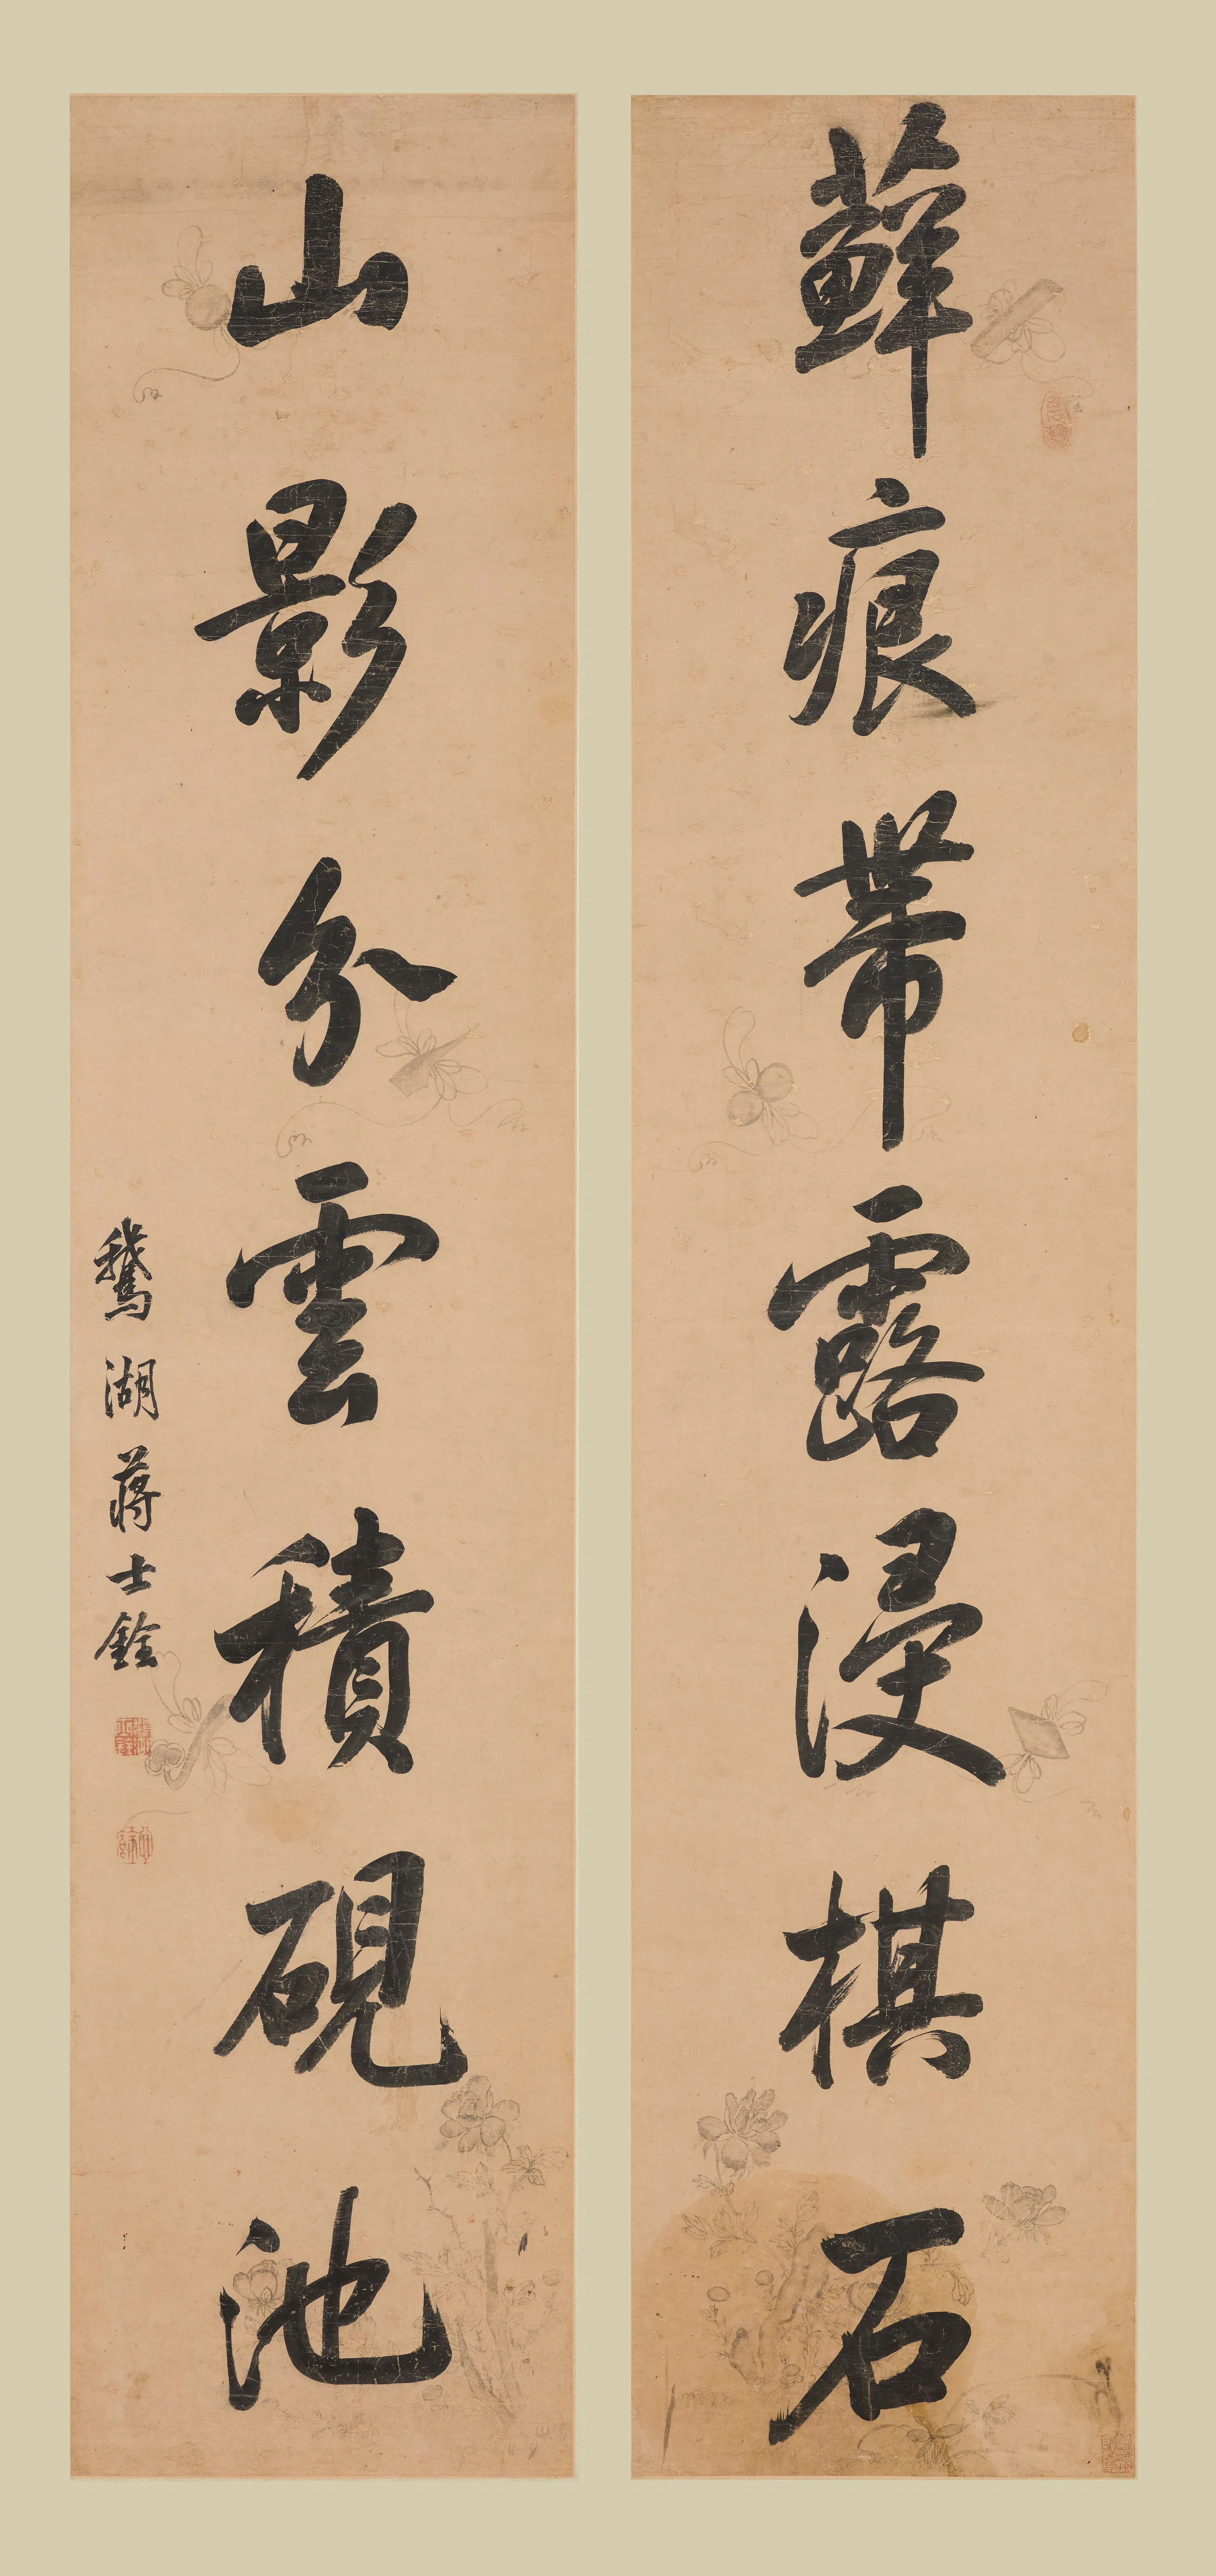 蘚痕帶露浸棋石
山影分雲積硯池
鵞湖蔣士銓